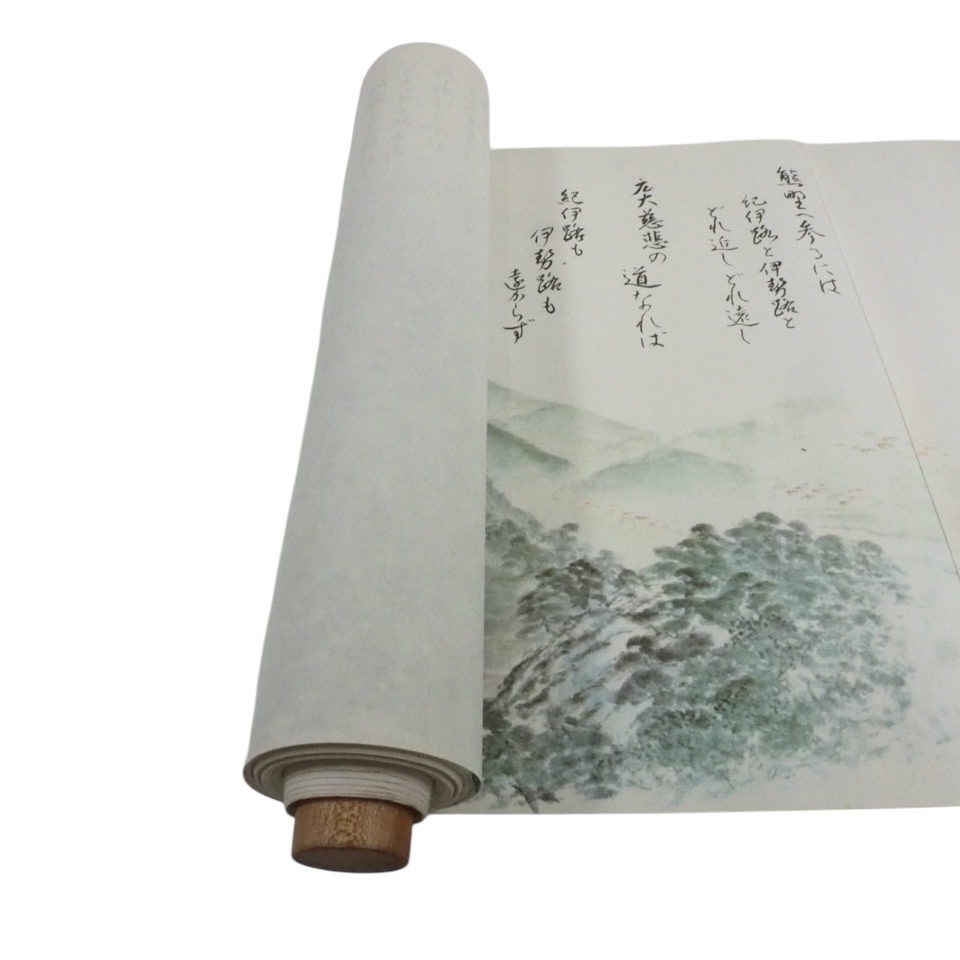 熊野へ参るには
紀伊路と伊勢路と
どれ近しどれ遠し
広大慈悲の
道なれば
紀伊路も
伊勢路も
遠からず